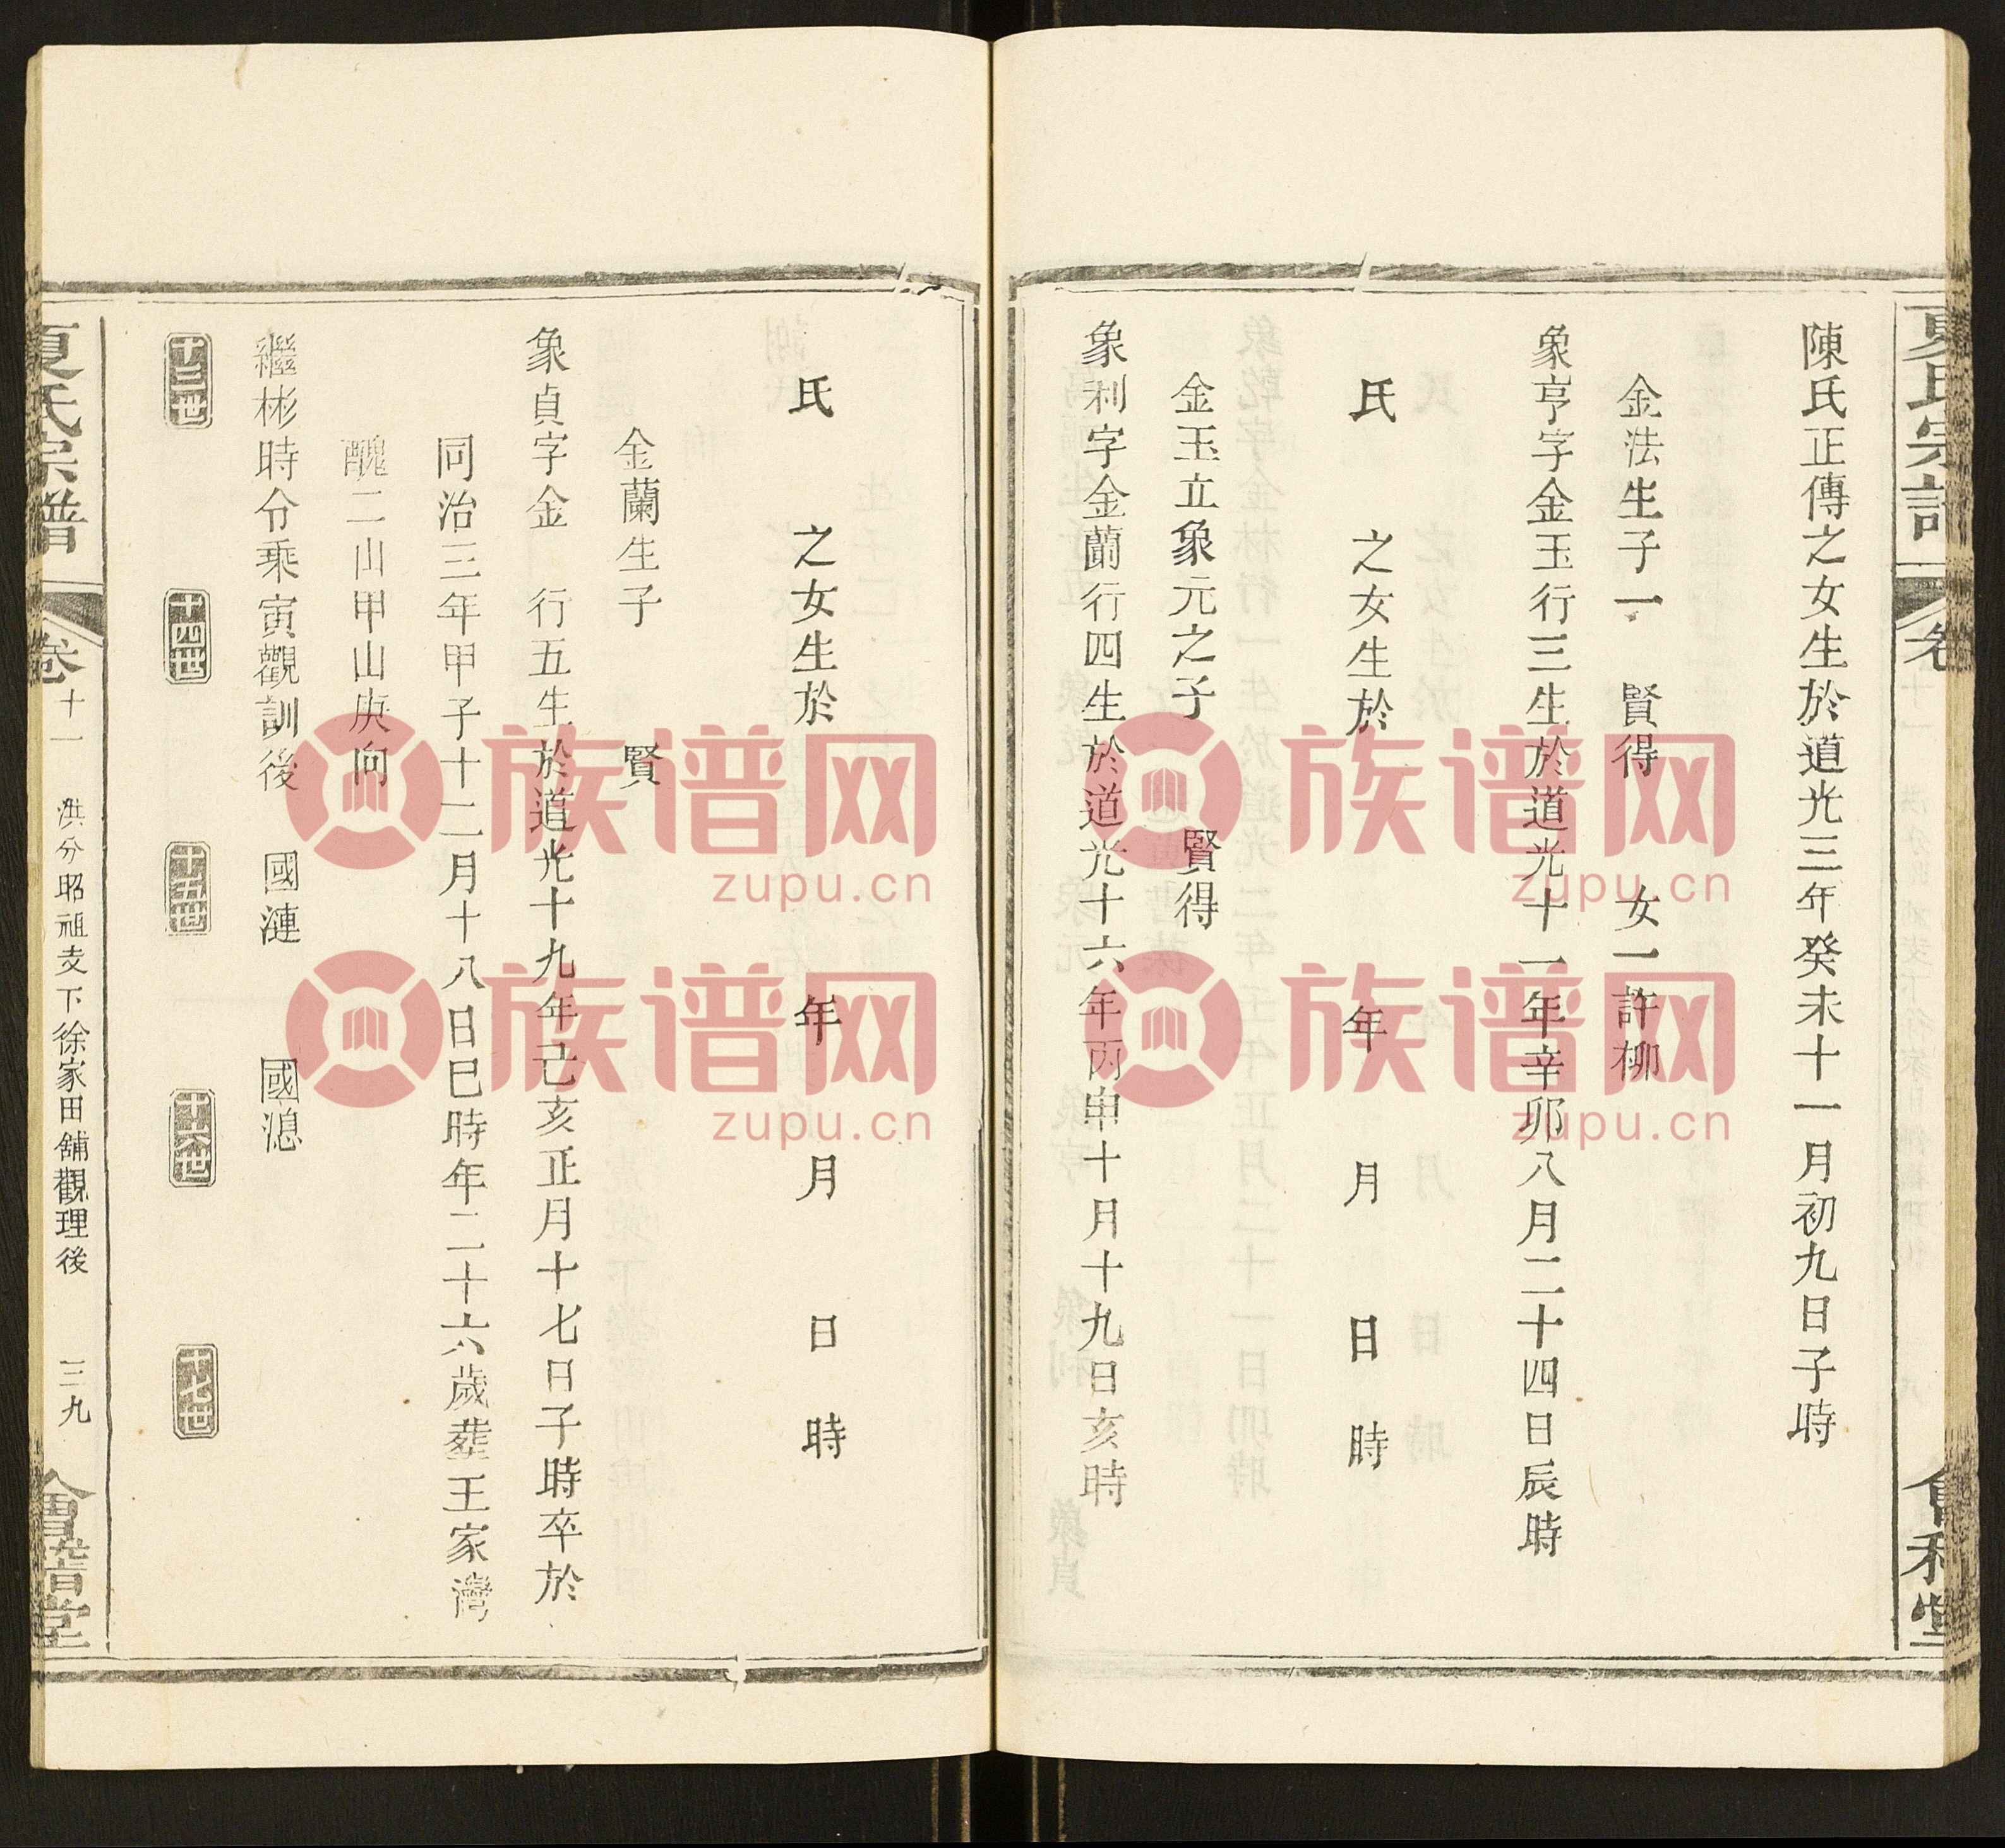 陳氏正傳之女生於道光三年癸未十一月初九日子時
金法生子一 賢得 女一許柳
象亨字金玉行三生於道光十一年辛卯八月二十四日辰時
氏 之女生於 年 月 日 時
金玉立象元之子 賢得
象利字金蘭行四生於道光十六年丙申十月十九日亥時
氏 之女生於 年 月 日 時
金蘭生子 賢
象貞字金 行五生於道光十九年己亥正月十七日子時卒於
同治三年甲子十二月十八日巳時年二十六歲葬王家灣
醜二山甲山庚向
繼彬時分乘寅觀訓後 國漣 國漶
十三世 十四世 十五世 十六世 十七世
夏氏宗譜 卷十一 洪分昭祖支下徐家田舖觀理後 三九 會
族谱网
zupu.cn
族谱网
zupu.cn
族谱网
zupu.cn
族谱网
zupu.cn